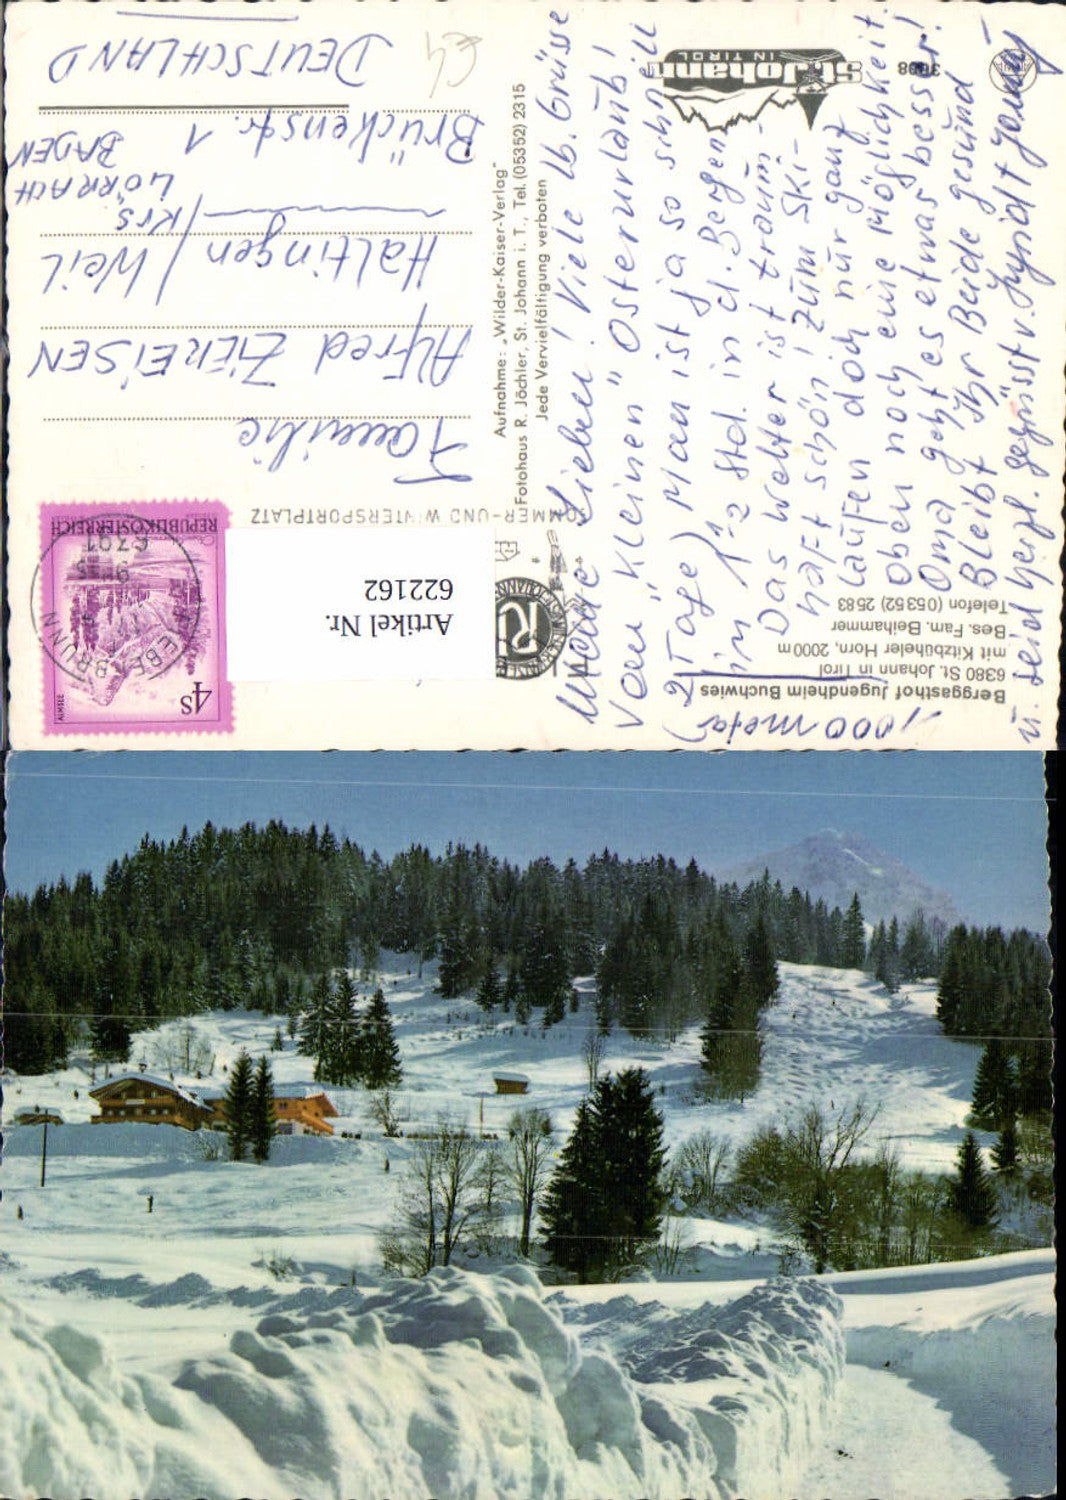 Berggasthof Jugendheim Buchwies
6380 St. Johann in Tirol
mit Kitzbüheler Horn, 2000 m
Bes. Fam. Beihammer
Telefon (05352) 2583
3698
St. Johann
IN TIROL
SOMMER- UND WINTERSPORTPLATZ
Aufnahme: „Wilder-Kaiser-Verlag"
Fotohaus R. Jöchler, St. Johann i. T., Tel. (05352) 2315
Jede Vervielfältigung verboten
Meine Lieben! Viele lb. Grüsse
vom "Kleinen" Osterurlaub!
(2 Tage) Man ist ja so schnell
in 1-2 Std. in d. Bergen.
Das Wetter ist traum-
haft schön! Zum Ski-
laufen doch nur ganz
oben noch eine Möglichkeit.
Oma geht es etwas besser!
Bleibt Ihr Beide gesund
u. seid herzl. gegrüsst v.
1000 meter
Familie
Alfred ZIEREISEN
Haltingen / Weil
Krs. LÖRRACH
BADEN
Brückenstr. 1
DEUTSCHLAND
REPUBLIK ÖSTERREICH
4S
ALMSEE
FIEBERBRUNN
6391
Artikel Nr.
622162